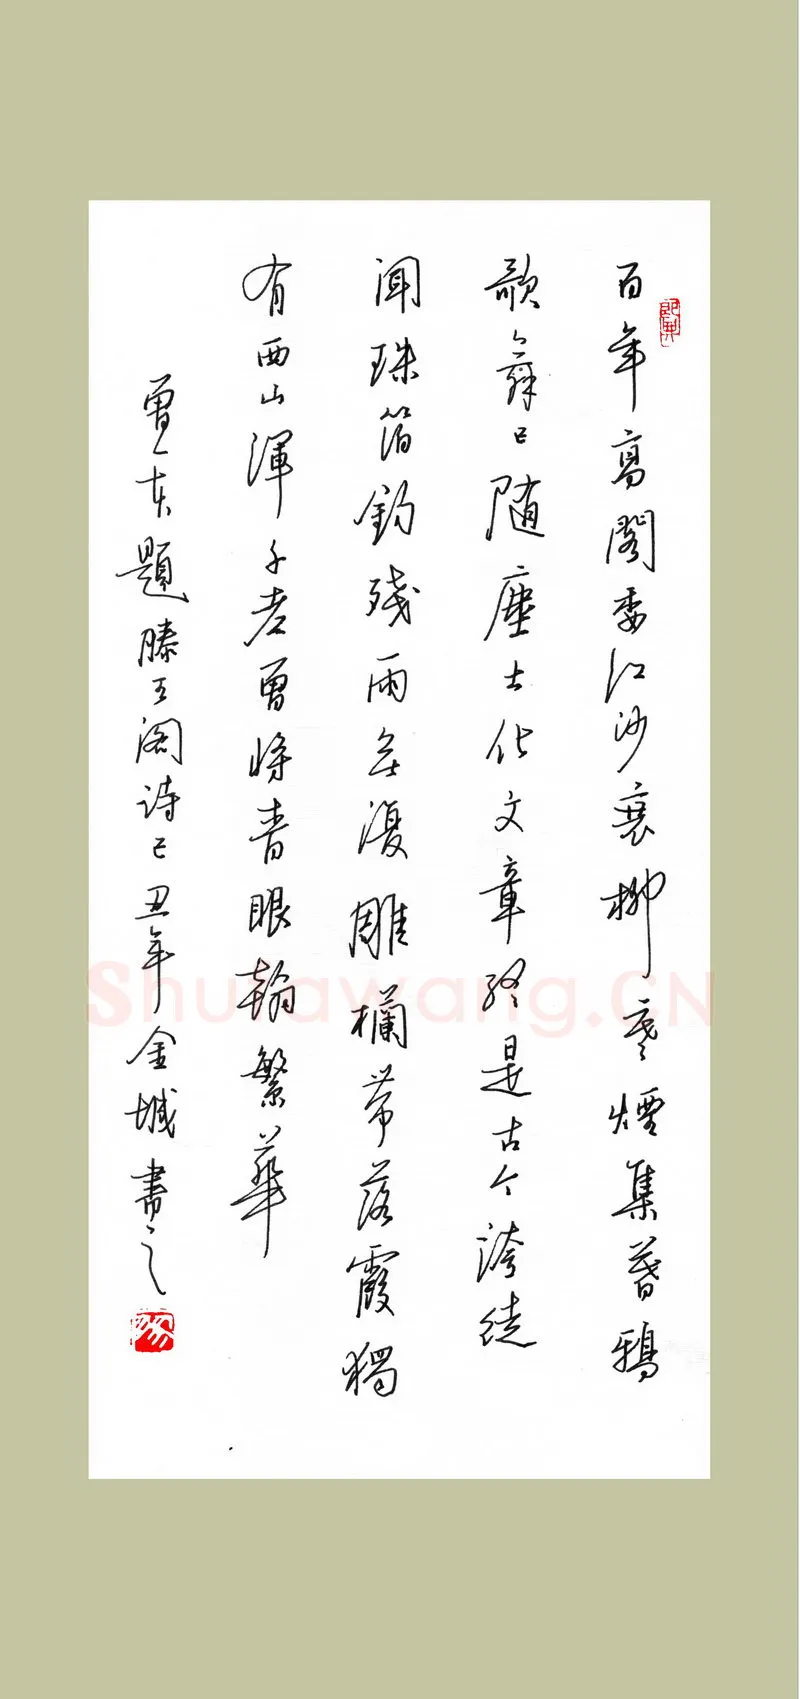 百年高閣委江沙衰柳寒煙集暮鴉
歌舞已随塵土化文章終是古今誇徒
聞珠箔鈎殘雨無復雕欄帶落霞獨
有西山渾不老曾將青眼翰繁華
曹一东題滕王阁诗己丑年金城書之
Shufawang.CN